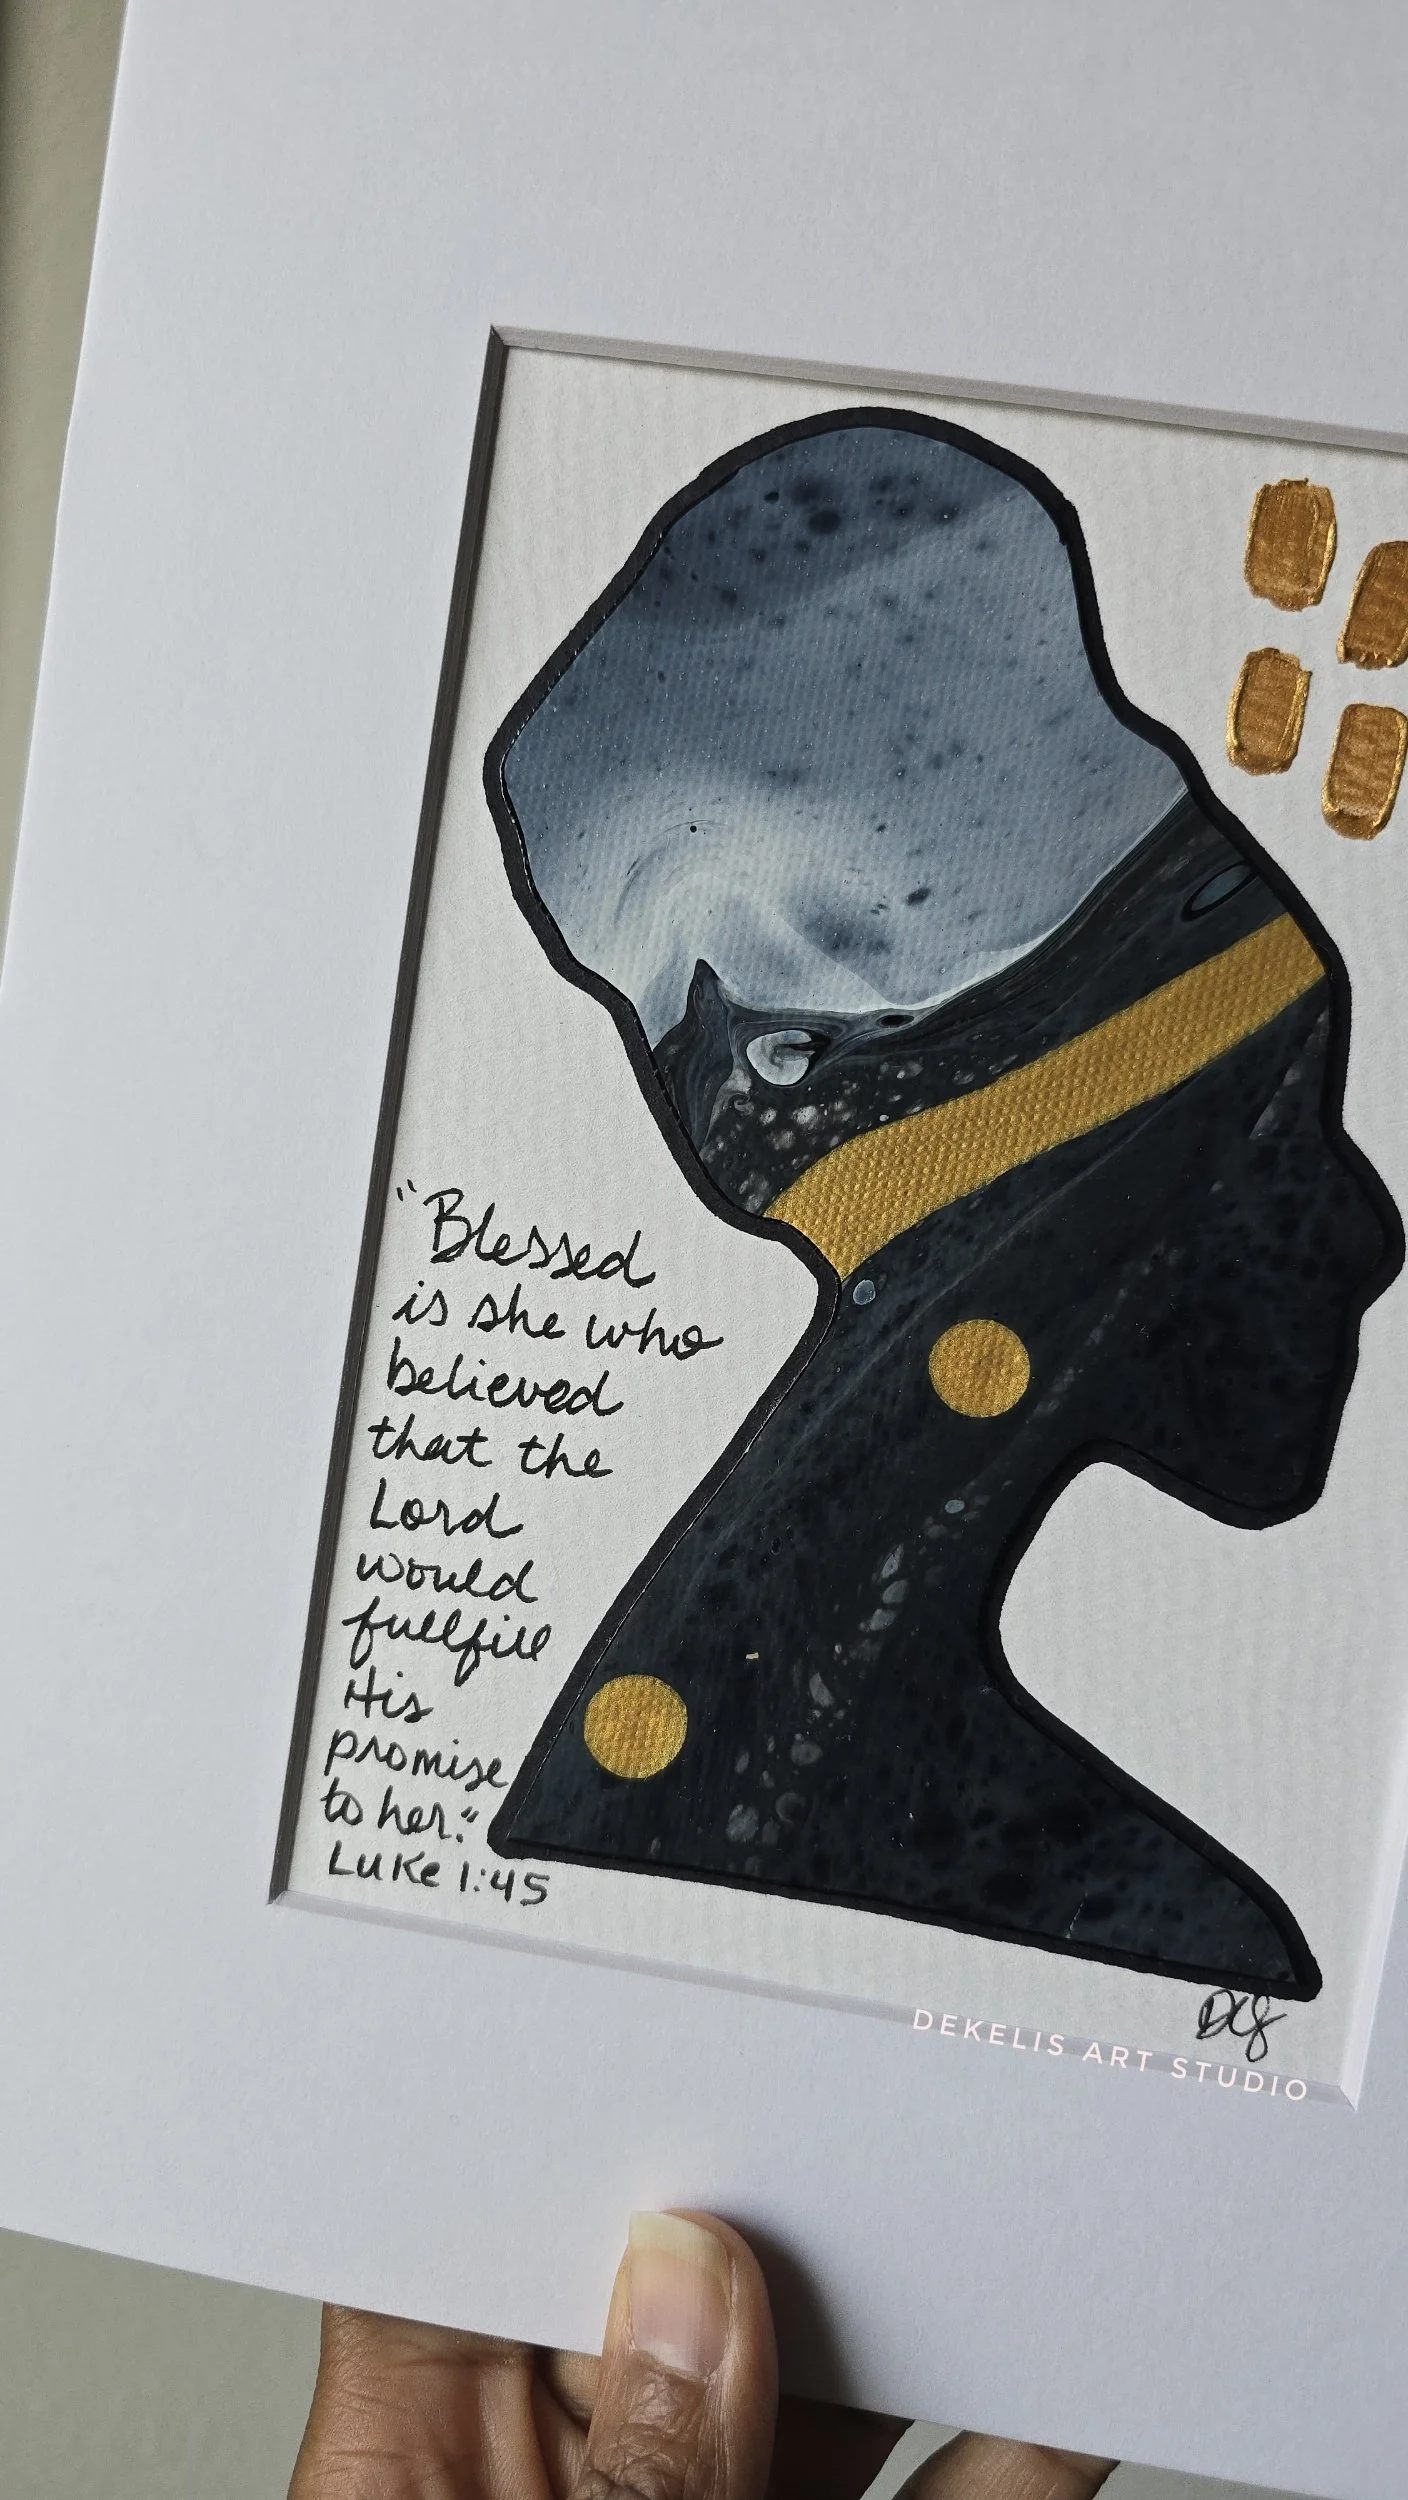 "Blessed
is she who
believed
that the
Lord
would
fullfill
His
promise
to her."
Luke 1:45
DEKELIS ART STUDIO